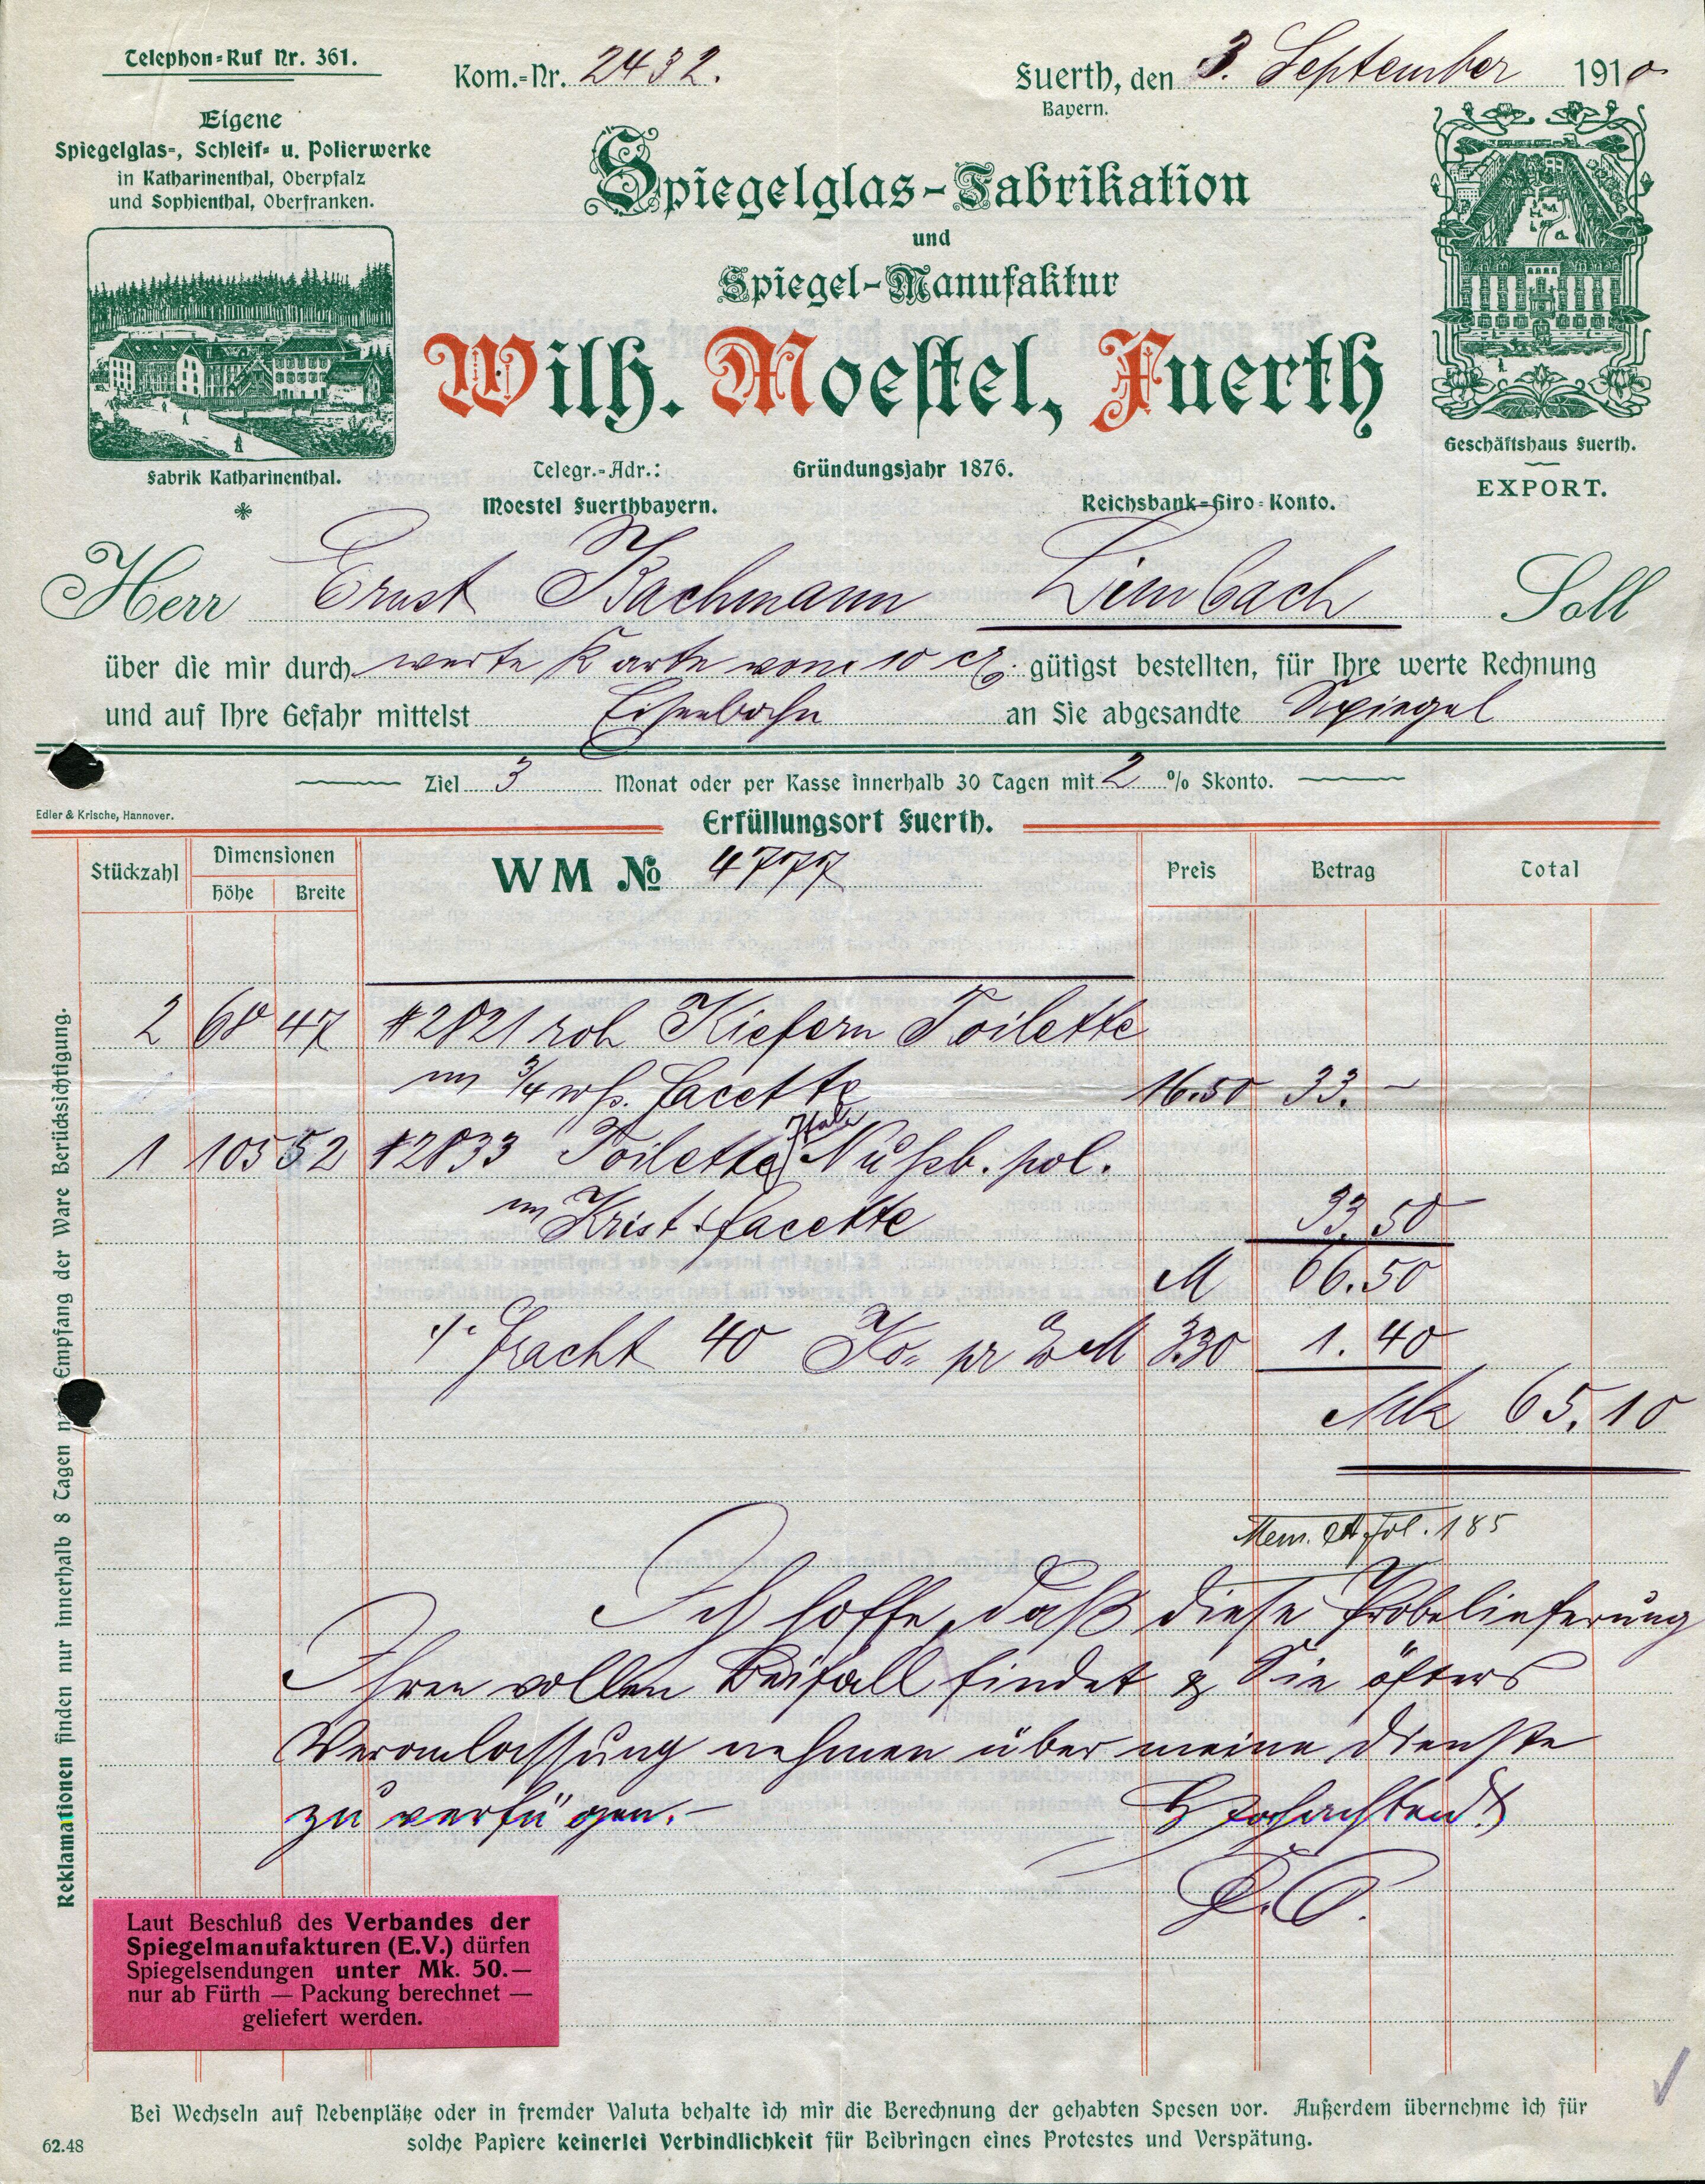 Telephon-Ruf Nr. 361.
Kom.-Nr. 2432.
Fuerth, den 3. September 1910
Bayern.
Eigene
Spiegelglas-, Schleif- u. Polierwerke
in Katharinenthal, Oberpfalz
und Sophienthal, Oberfranken.
Spiegelglas-Fabrikation
und
Spiegel-Manufaktur
Wilh. Moestel, Fuerth
Fabrik Katharinenthal.
Telegr.-Adr.:
Moestel Fuerthbayern.
Gründungsjahr 1876.
Reichsbank-Giro-Konto.
Geschäftshaus Fuerth.
EXPORT.
Herr Ernst Bachmann Limbach Soll
über die mir durch werte Karte vom 10 gütigst bestellten, für Ihre werte Rechnung
und auf Ihre Gefahr mittelst Eisenbahn an Sie abgesandte Spiegel
Ziel 3 Monat oder per Kasse innerhalb 30 Tagen mit 2 % Skonto.
Edler & Krische, Hannover.
Erfüllungsort Fuerth.
Stückzahl Dimensionen Höhe Breite WM No 4777 Preis Betrag Total
2 68 47 #2821 roh Kiefern Toilette
m 3/4 wß. Facette 16.50 33.-
1 105 52 #2833 Toilette Ital. Nußb. pol.
m Krist. facette 33.50
M 66.50
./. Fracht 40 Ko. pr % M 3.30 1.40
Mk 65.10
Mem. fol. 185
Ich hoffe, daß diese Probelieferung
Ihren vollen Beifall findet & Sie öfters
Veranlassung nehmen über meine Dienste
zu verfügen.-
Hochachtend
Reklamationen finden nur innerhalb 8 Tagen Empfang der Ware Berücksichtigung.
Laut Beschluß des Verbandes der
Spiegelmanufakturen (E.V.) dürfen
Spiegelsendungen unter Mk. 50.—
nur ab Fürth — Packung berechnet —
geliefert werden.
Bei Wechseln auf Nebenplätze oder in fremder Valuta behalte ich mir die Berechnung der gehabten Spesen vor. Außerdem übernehme ich für
solche Papiere keinerlei Verbindlichkeit für Beibringen eines Protestes und Verspätung.
62.48